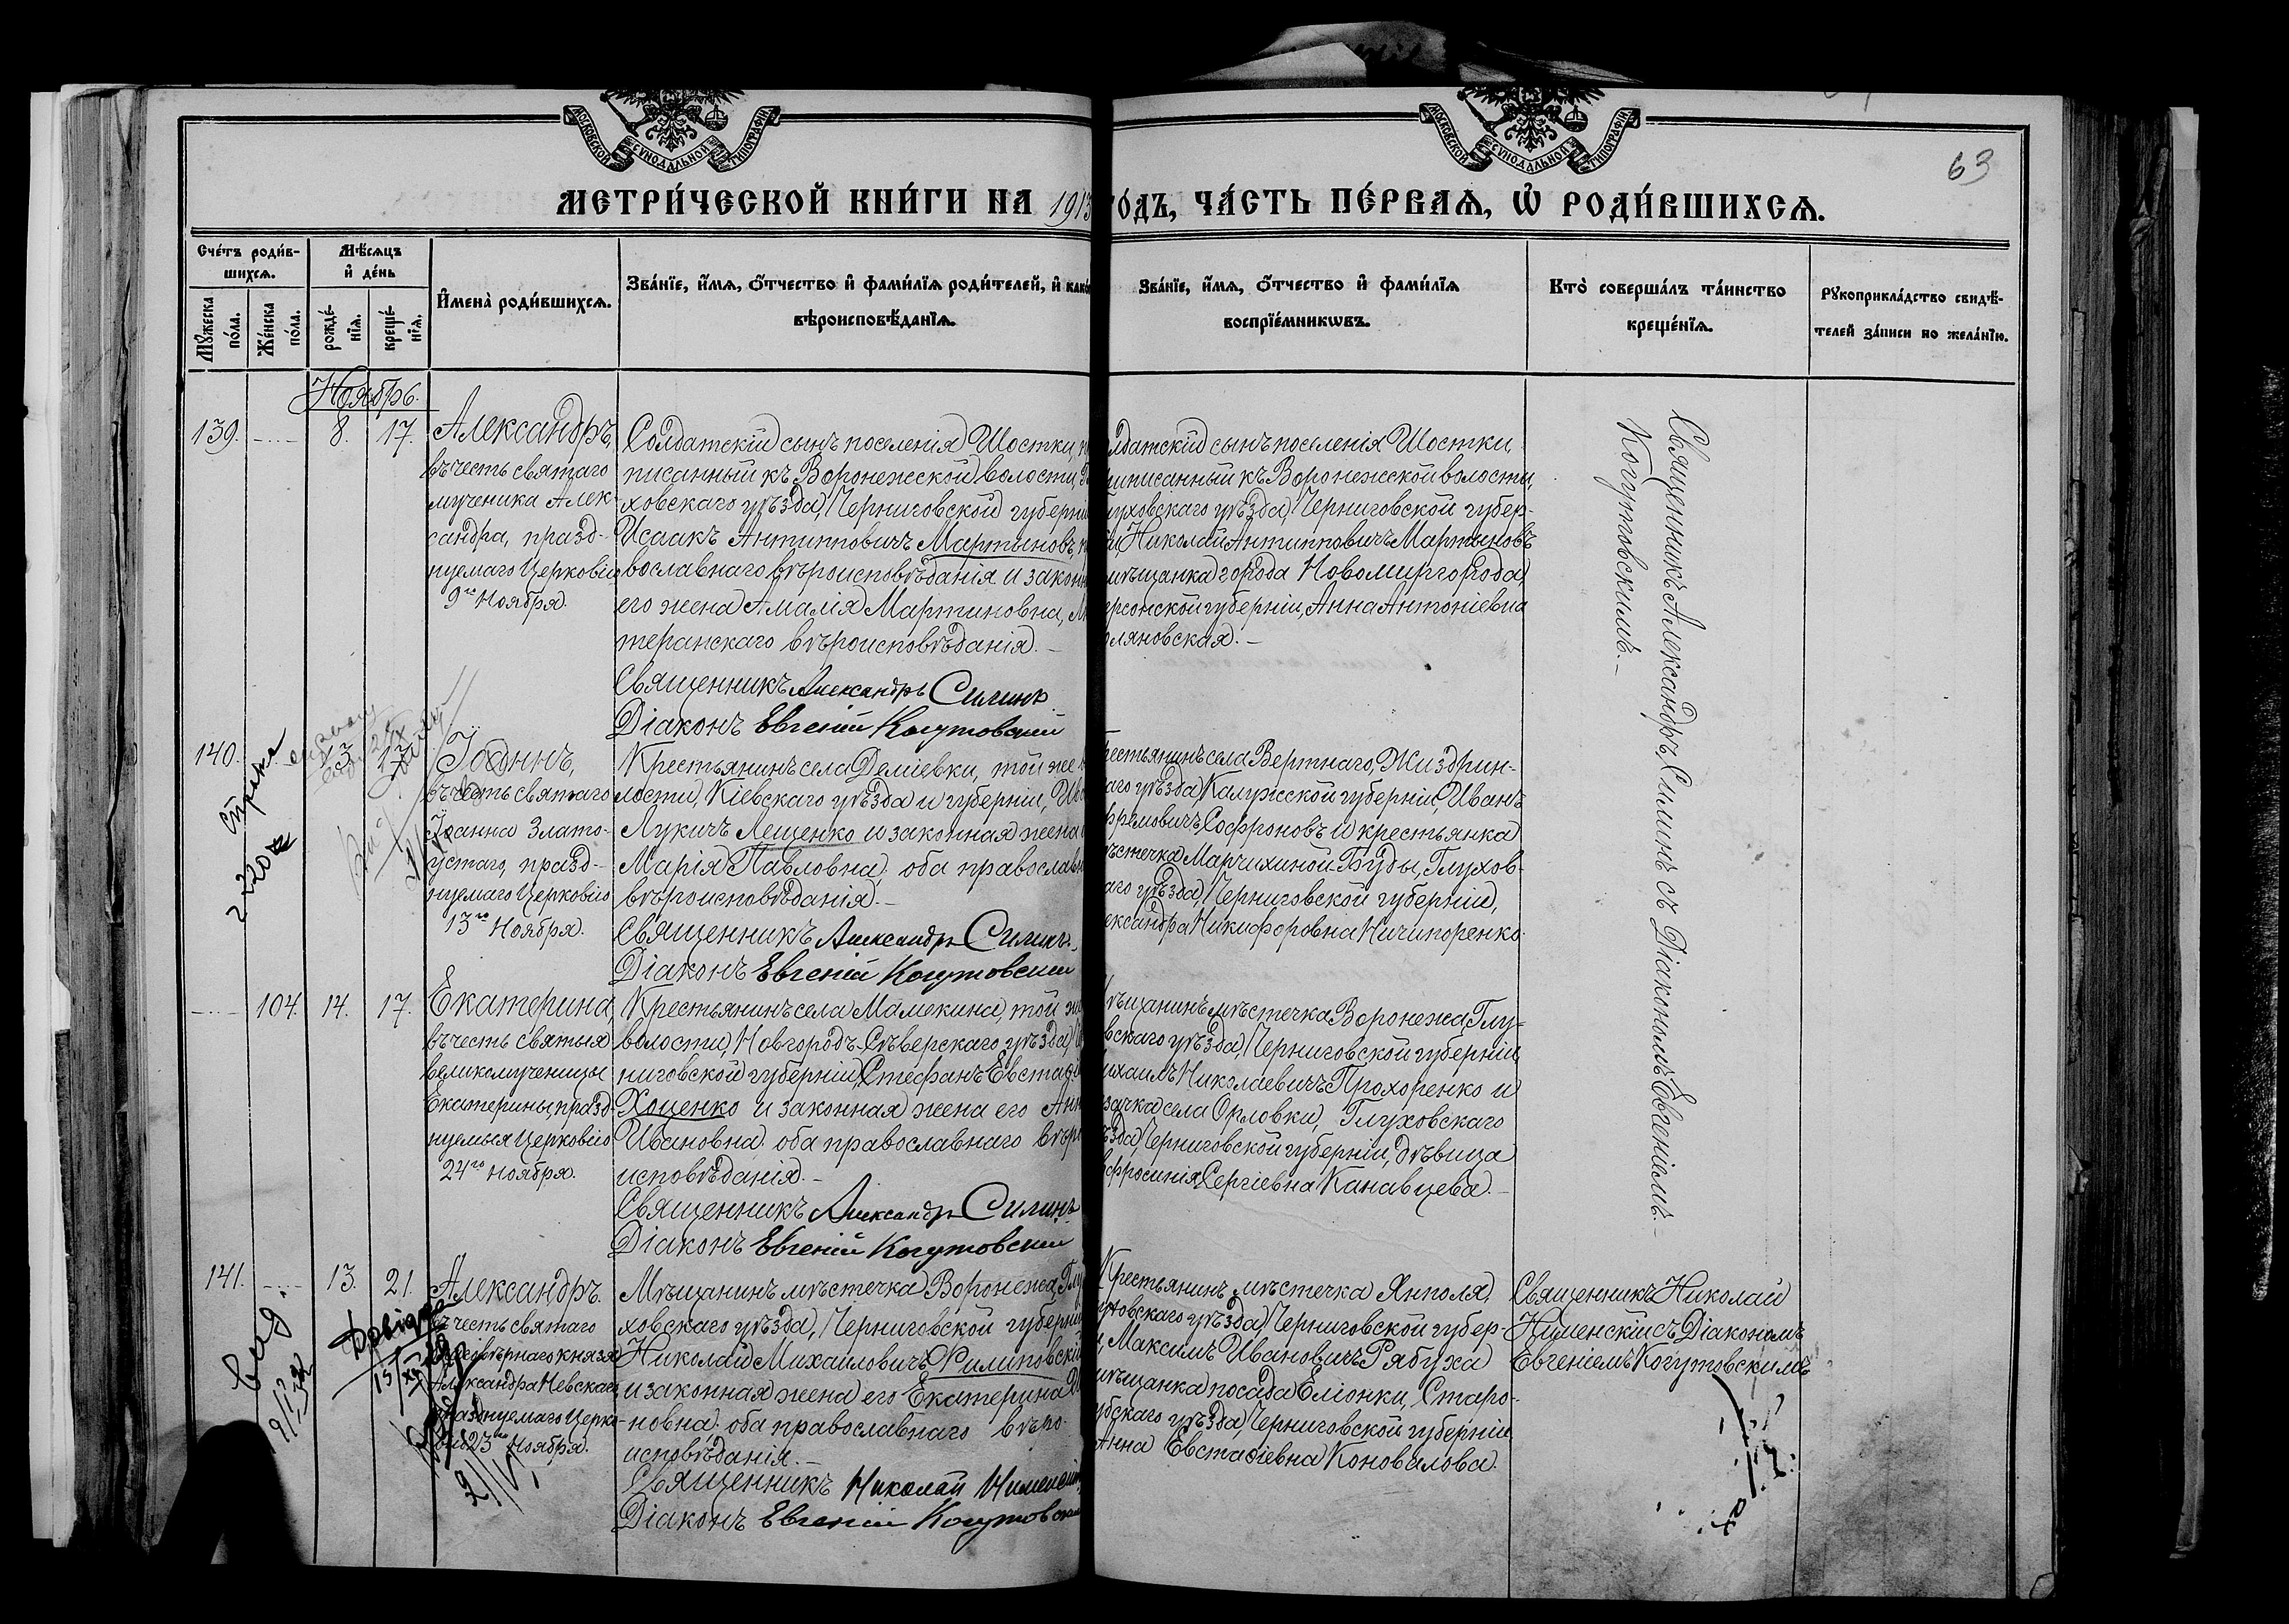 МОСКОВСКОЙ СУНОДАЛЬНОЙ ТИПОГРАФІИ
МОСКОВСКОЙ СУНОДАЛЬНОЙ ТИПОГРАФІИ
63
МЕТРИ́ЧЕСКОЙ КНИ́ГИ НА 1913
ГО́ДЪ, ЧА́СТЬ ПЕ́РВАѦ, Ѡ҆ РОДИ́ВШИХСѦ.
Сче́тъ роди́в-
шихсѧ.
Мѣ́сѧцъ
и҆ де́нь
Мꙋ́жеска по́ла.
Же́нска по́ла.
рожде́-
нїѧ.
креще́-
нїѧ.
И҆мена̀ роди́вшихсѧ.
Зва́нїе, и҆́мѧ, ѻ҆́тчество и҆ фами́лїѧ роди́телей, и҆ како́
вѣроисповѣ́данїѧ.
Зва́нїе, и҆́мѧ, ѻ҆́тчество и҆ фами́лїѧ
воспрїе́мникѡвъ.
Кто̀ соверша́лъ та́инство
креще́нїѧ.
Рꙋкоприкла́дство свидѣ́-
телей за́писи по жела́нїю.
Ноябрь.
139.
8.
17.
Александръ,
въ честь святаго
мученика Алек-
сандра, празд-
нуемаго Церковію
9го Ноября.
Солдатскій сынъ поселенія Шостки,
писанный къ Воронежской волости,
ховскаго уѣзда, Черниговской губерніи
Исаакъ Антипповичъ Мартыновъ,
вославнаго вѣроисповѣданія и законн
его жена Амалія Мартиновна,
теранскаго вѣроисповѣданія.
Священникъ Александръ Силинъ
Діаконъ Евгеній Когутовскій
лдатскій сынъ поселенія Шостки,
иписанный къ Воронежской волости,
уховскаго уѣзда, Черниговской губер-
и, Николай Антипповичъ Мартыновъ
мѣщанка города Новомиргорода,
ерсонской губерніи, Анна Антоніевна
оляновская.
Священникъ Александръ Силинъ съ Діакономъ Евгеніемъ
Когутовскимъ.
140.
13
17
Іоаннъ,
въ честь святаго
Іоанна Злато-
устаго, празд-
нуемаго Церковію
13го Ноября.
Крестьянинъ села Деміевки, той же
лости, Кіевскаго уѣзда и губерніи, Ива
Лукичъ Лещенко и законная жена
Марія Павловна, оба православн
вѣроисповѣданія.
Священникъ Александръ Силинъ
Діаконъ Евгеній Когутовскій
рестьянинъ села Вертнаго, Жиздрин-
аго уѣзда, Калужской губерніи, Иванъ
фремовичъ Софроновъ и крестьянка
ѣстечка Марчихиной-Буды, Глухов-
аго уѣзда, Черниговской губерніи,
ександра Никифоровна Ничипоренко.
104.
14.
17.
Екатерина,
въ честь святыя
великомученицы
Екатерины, празд-
нуемыя Церковію
24го Ноября.
Крестьянинъ села Мамекина, той же
волости, Новгородъ-Сѣверскаго уѣзда,
ниговской губерніи, Стефанъ Евстаѳі
Хоценко и законная жена его Анн
Ивановна, оба православнаго вѣро
исповѣданія.
Священникъ Александръ Силинъ
Діаконъ Евгеній Когутовскій
ѣщанинъ мѣстечка Воронежа, Глу-
вскаго уѣзда, Черниговской губерніи,
ихаилъ Николаевичъ Прохоренко и
зачка села Орловки, Глуховскаго
ѣзда, Черниговской губерніи, дѣвица
фросинія Сергіевна Канавцева.
141.
13.
21.
Александръ,
въ честь святаго
благовѣрнаго князя
Александра Невскаго,
празднуемаго Церко-
вію 23го Ноября.
Мѣщанинъ мѣстечка Воронежа, Глу
ховскаго уѣзда, Черниговской губерніи
Николай Михаиловичъ Филиповскій
и законная жена его Екатерина
новна, оба православнаго вѣро-
исповѣданія.
Священникъ Николай Нименскій
Діаконъ Евгеній Когутовскій
Крестьянинъ мѣстечка Ямполя,
уховскаго уѣзда, Черниговской губер-
и, Максимъ Ивановичъ Рябуха
мѣщанка посада Еліонки, Старо-
убскаго уѣзда, Черниговской губерніи
Анна Евстаѳіевна Коновалова.
Священникъ Николай
Нименскій съ Діакономъ
Евгеніемъ Когутовскимъ